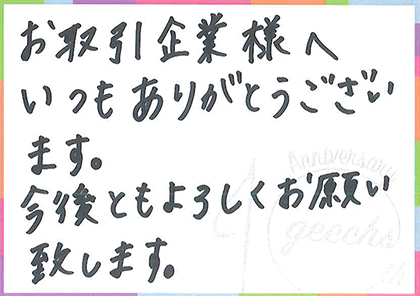 お取引企業様へ
いつもありがとうござい
ます。
今後ともよろしくお願い
致します。
Anniversary
geechs
th